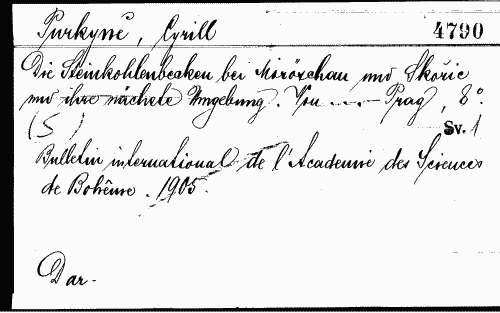 Purkyně, Cyrill 4790
Die Steinkohlenbecken bei Miröschau und Skořic
und ihre nächste Umgebung. Von --- Prag, 8°.
(S) Sv. 1
Bulletin international de l'Academie des Sciences
de Bohême. 1905.
Dar.